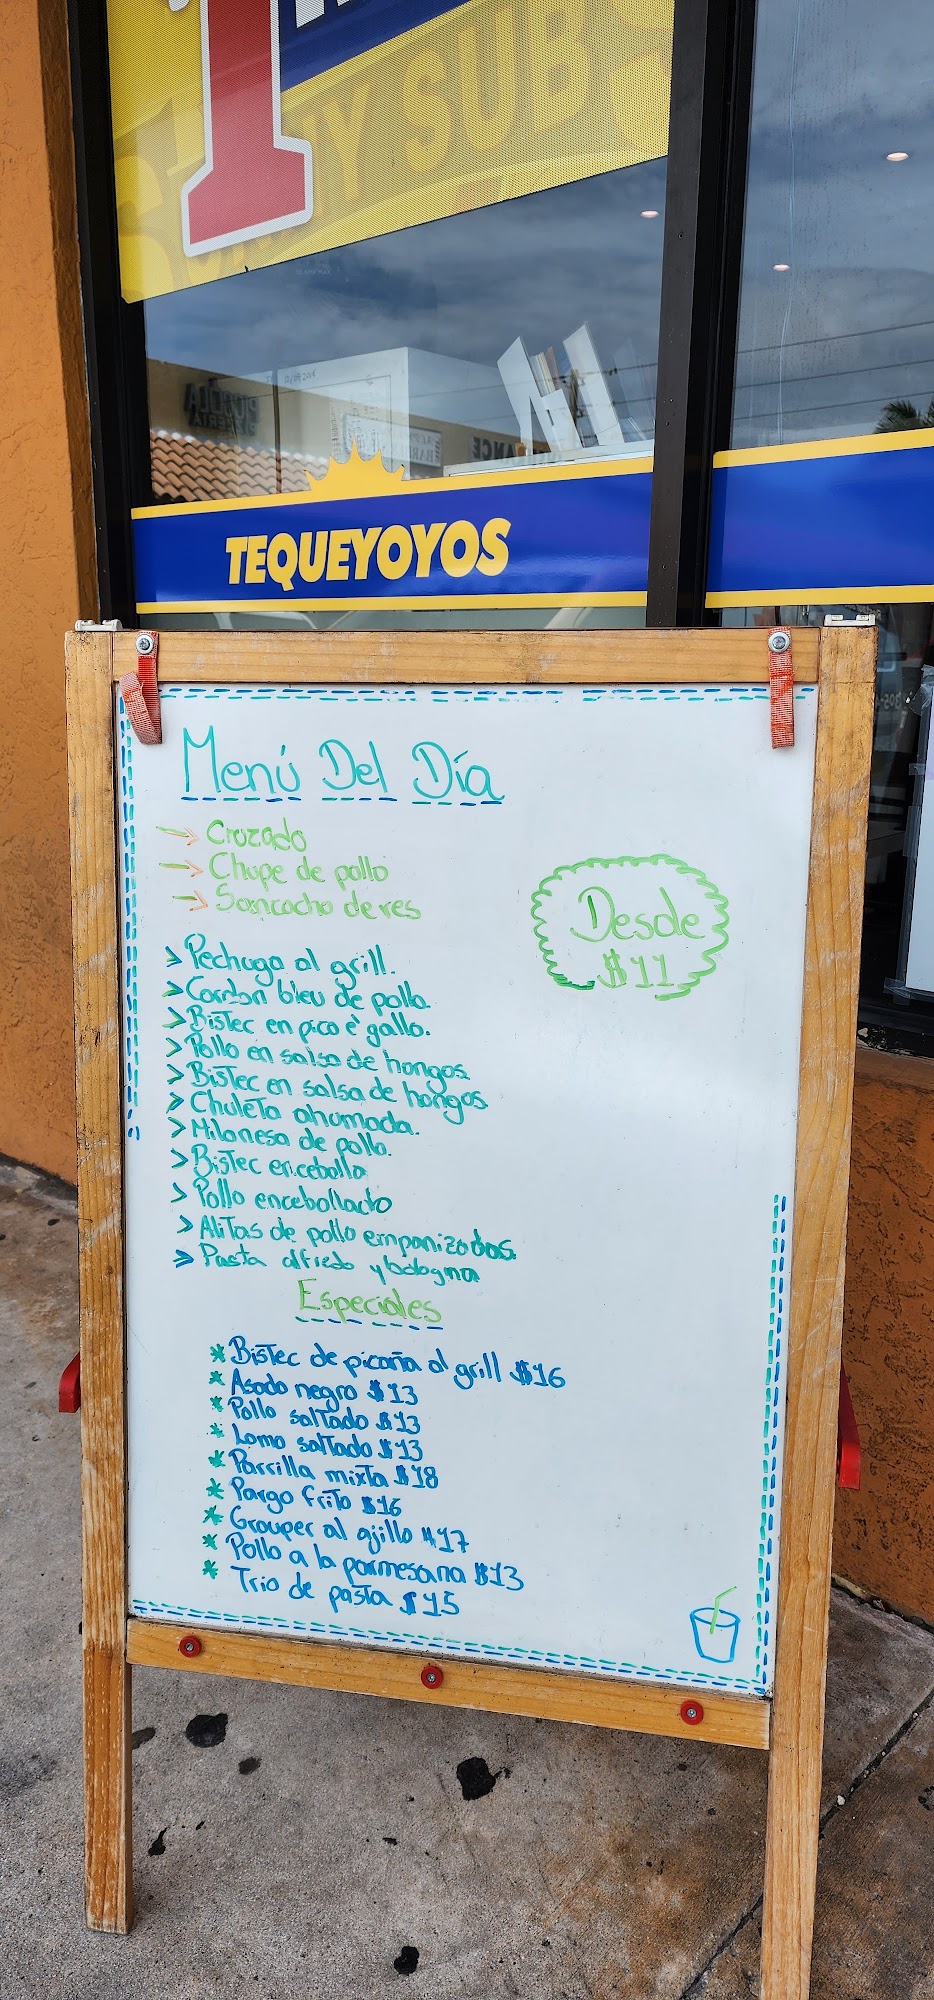 NY SUBS
TEQUEYOYOS
Menú Del Día
Cruzado
Chupe de pollo
Sancocho de res
Desde
$11
Pechuga al grill.
Cordon bleu de pollo.
Bistec en pico è gallo.
Pollo en salsa de hongos.
Bistec en salsa de hongos
Chuleta ahumada.
Milanesa de pollo.
Bistec encebolla
Pollo encebollado
Alitas de pollo empanizadas.
Pasta alfredo y bologna
Especiales
* Bistec de picaña al grill $16
* Asado negro $13
* Pollo saltado $13
* Lomo saltado $13
* Parrilla mixta $18
* Pargo frito $16
* Grouper al ajillo $17
* Pollo a la parmesana $13
* Trio de pasta $15